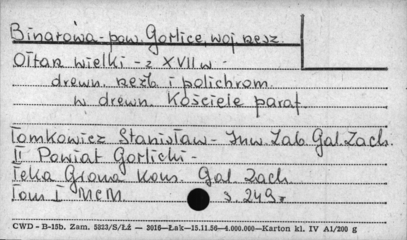 Binarowa - pow. Gorlice, woj. rzesz.
Ołtarz wielki - z XVII w -
drewn. rzeźb i polichrom.
w drewn. Kościele paraf.
Tomkowicz Stanisław - Inw. Zab. Gal. Zach.
II Powiat Gorlicki -
Teka Grona Kons. Gal. Zach
Tom I MCM. s. 249
CWD - B-15b. Zam. 5823/S/Łź — 2016—Łak—15.11.56—4.000.000—Karton kl. IV A1/200 g